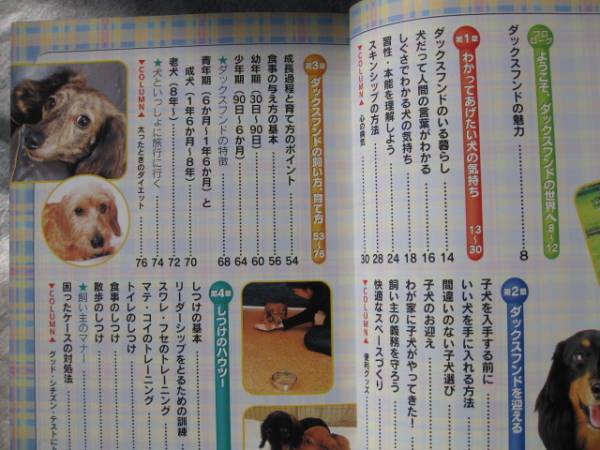 プロローグ
ようこそ、ダックスフンドの世界へ 8〜12
ダックスフンドの魅力 8
第1章 わかってあげたい犬の気持ち 13〜30
ダックスフンドのいる暮らし 14
犬だって人間の言葉がわかる 16
しぐさでわかる犬の気持ち 18
習性・本能を理解しよう 24
スキンシップの方法 28
▼COLUMN▲ 心の病気 30
第2章 ダックスフンドを迎える
子犬を入手する前に
いい犬を手に入れる方法
間違いのない子犬選び
子犬のお迎え
わが家に子犬がやってきた!
飼い主の義務を守ろう
快適なスペースづくり
▼COLUMN▲ 便利グッズ
第3章 ダックスフンドの飼い方、育て方 53〜76
成長過程と育て方のポイント 54
食事の与え方の基本 56
幼年期(30日〜90日) 60
少年期(90日〜6か月) 64
★ダックスフンドの特徴 68
青年期(6か月〜1年6か月)と
成犬(1年6か月〜8年) 70
老犬(8年〜) 72
★犬といっしょに旅行に行く 74
▼COLUMN▲ 太ったときのダイエット 76
第4章 しつけのハウツー
しつけの基本
リーダーシップをとるための訓練
スワレ・フセのトレーニング
マテ・コイのトレーニング
トイレのしつけ
食事のしつけ
散歩のしつけ
★飼い主のマナー
困ったケースの対処法
▼COLUMN▲ グッド・シチズン・テストに